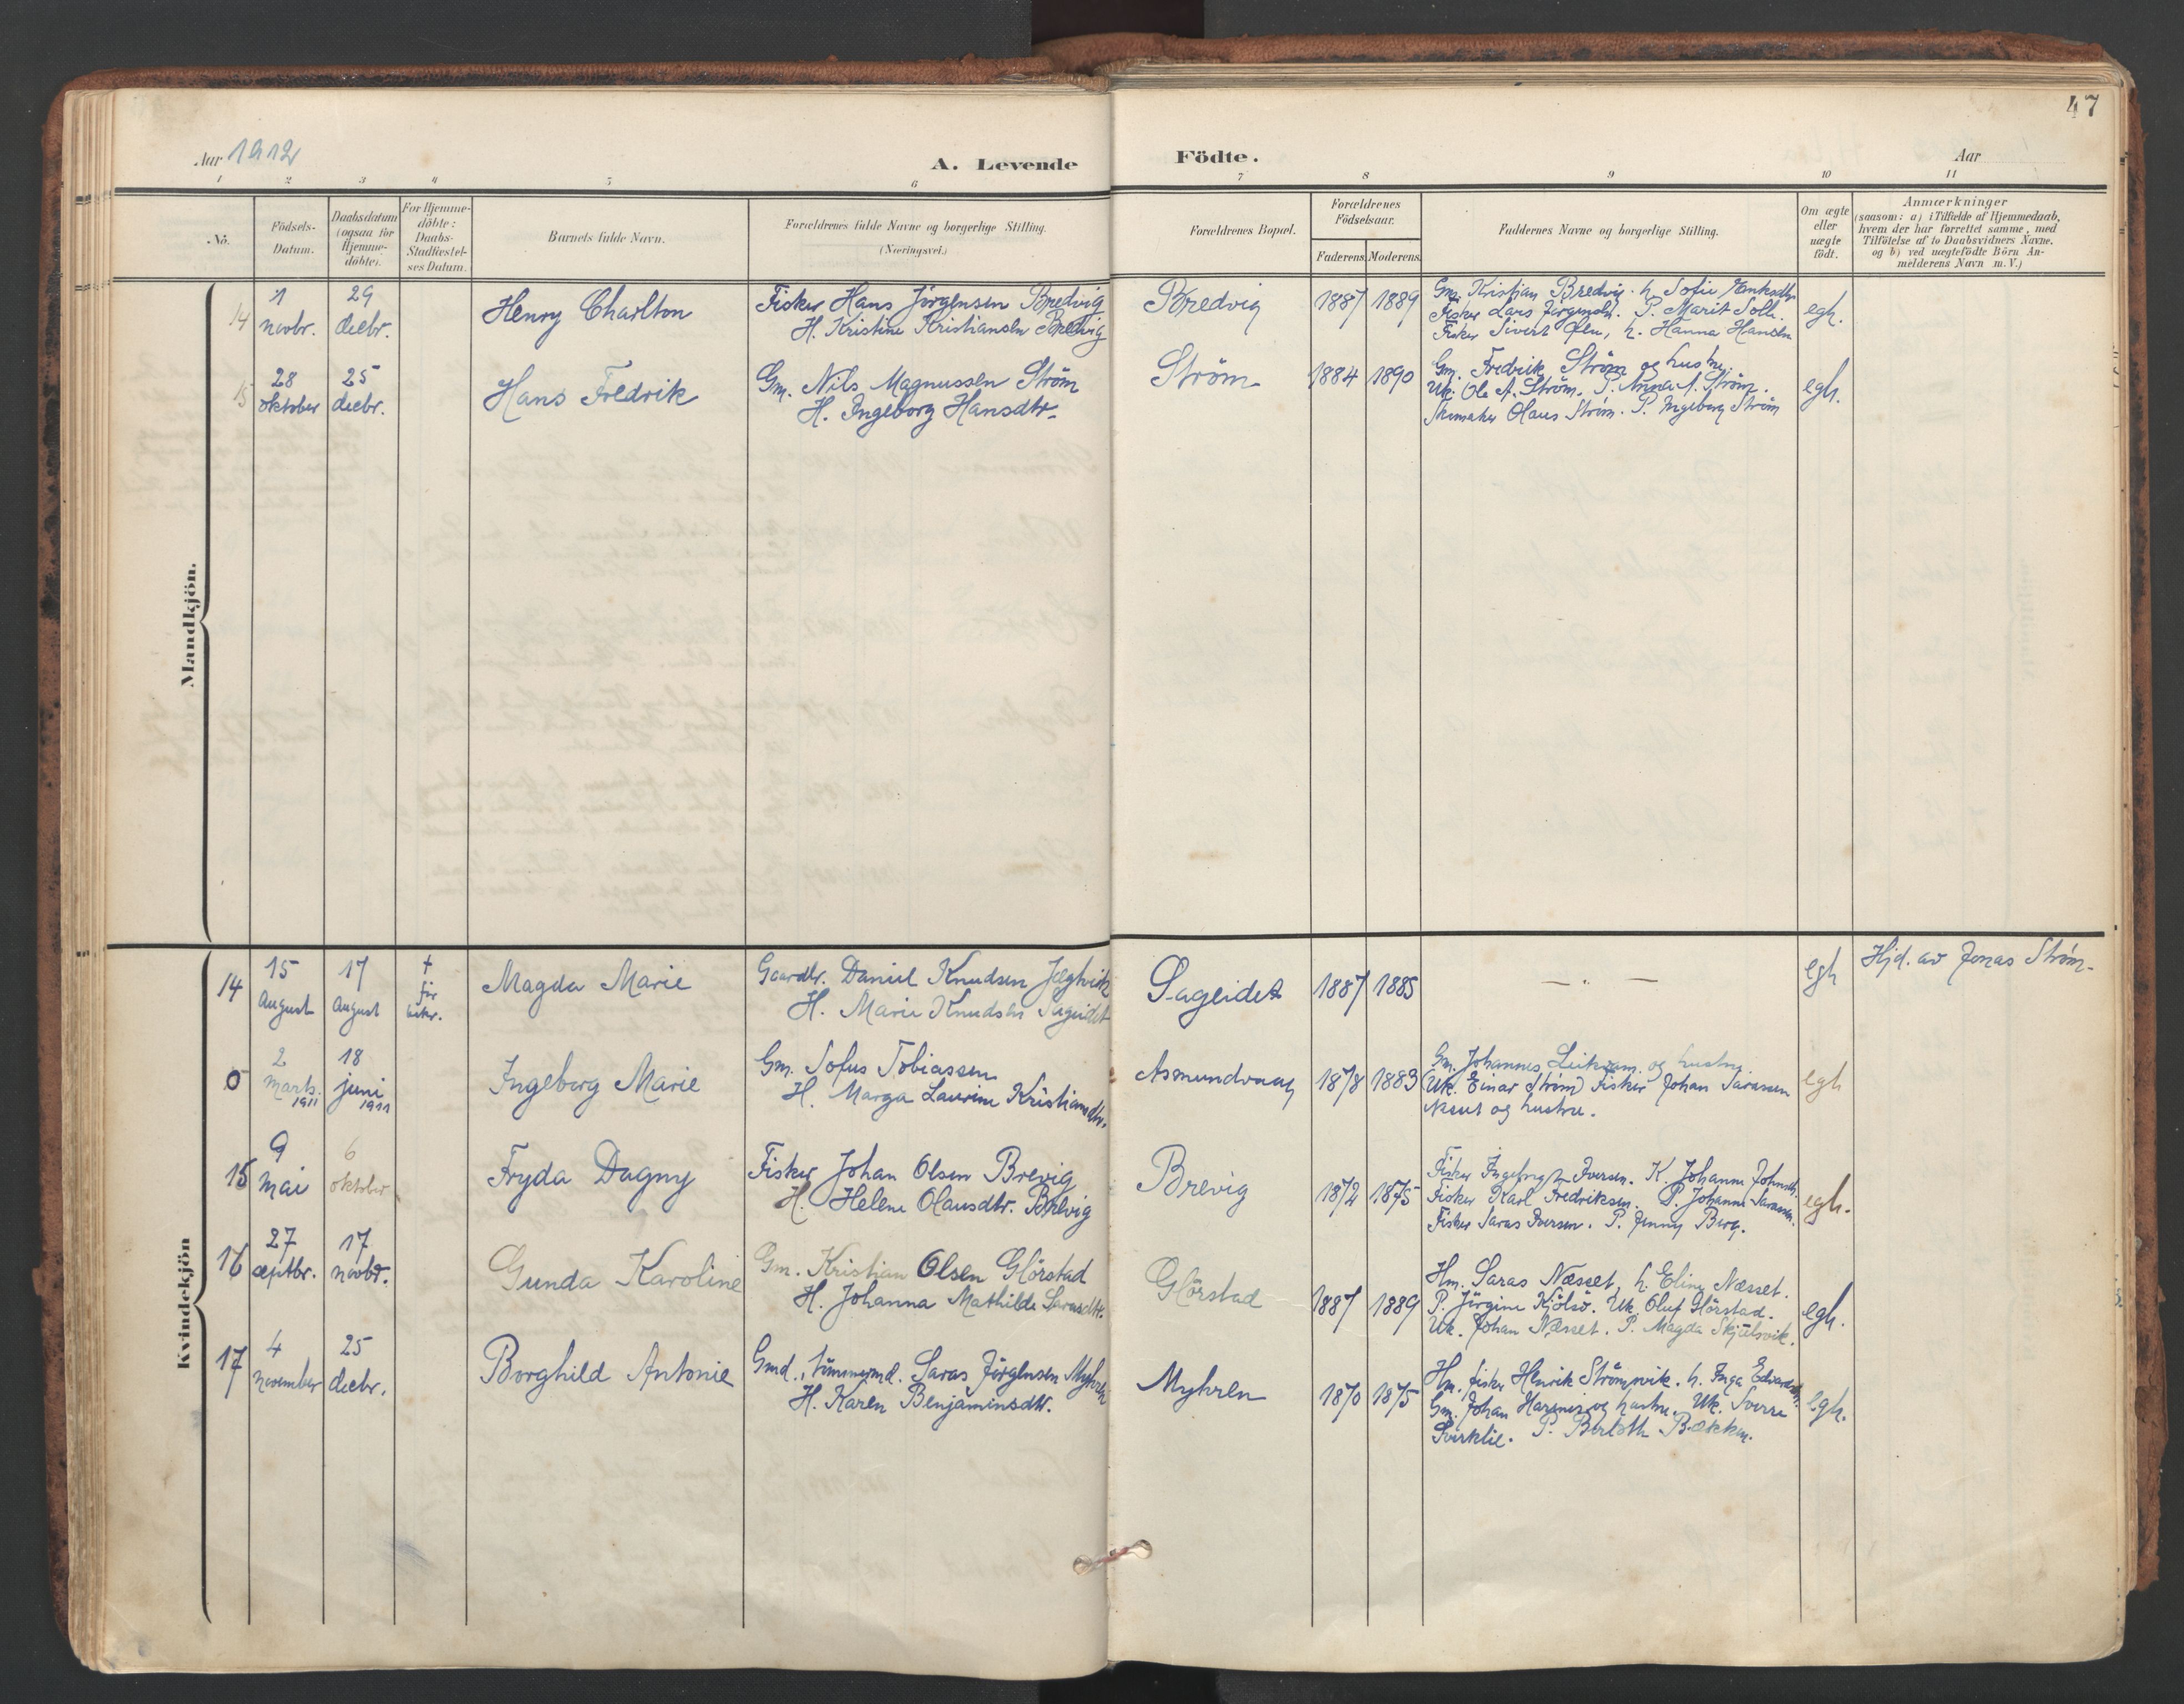 47
Aar 1912
A. Levende
Födte.
Aar
1 2 3 4 5 6 7 8 9 10 11
No.
Födsels-
Datum.
Daabsdatum
(ogsaa for
Hjemme-
döbte).
For Hjemme-
döbte:
Daabs-
Stadfæstel-
ses Datum.
Barnets fulde Navn.
Forældrenes fulde Navne og borgerlige Stilling.
(Næringsvei.)
Forældrenes Bopæl.
Forældrenes
Födselsaar.
Faderens. Moderens.
Faddernes Navne og borgerlige Stilling.
Om ægte
eller
uægte
födt.
Anmærkninger
(saasom: a) i Tilfælde af Hjemmedaab,
hvem der har forrettet samme, med
Tilföielse af to Daabsvidners Navne.
og b) ved uægtefödte Börn An-
melderens Navn m. V.)
Mandkjön.
14
1
novbr.
29
decbr.
Henry Charlton
Fisker Hans Jørgensen Bredvig
H. Kristine Kristiansen Bredvig
Bredvig
1887 1889
Gm. Kristian Bredvig. h. Sofie
Fisker Lars Jørgensen. P. Marit Solli.
Fisker Sivert Øen, h. Hanna Hansen
egh.
15
28
oktober
25
decbr.
Hans Fredrik
Gm. Nils Magnussen Strøm
H. Ingeborg Hansdtr.
Strøm
1884 1890
Gm. Fredrik Strøm og hustru.
Uk. Ole A. Strøm. P. Anna A. Strøm.
Skomaker Olaus Strøm. P. Ingeborg Strøm
egh.
Kvindekjön
14
15
August
17
August
†
før
Magda Marie
Gaardbr. Daniel Knudsen Jægtvik
H. Marie Knudsdtr. Sageidet
Sageidet
1887 1885
— . —
egh
Hjd. av Jonas Strøm.
0
2
marts
1911
18
juni
1911
Ingeborg Marie
Gm. Sofus Tobiassen
H. Marga Laurine Kristiansdtr.
Asmundvaag
1878 1883
Gm. Johannes og hustru.
(Uk. Einar Strøm) Fisker Johan Sarassen
og hustru.
egh
15
9
mai
6
oktober
Fryda Dagny
Fisker Johan Olsen Brevig
H. Helene Olausdtr. Brevig
Brevig
1872 1875
Fisker Iversen. K. Johanne
Fisker Karl Fredriksen. P. Johanne Sarassen.
Fisker Saras Iversen. P. Jenny Berg.
egh.
16
27
septbr.
17
novbr.
Gunda Karoline
Gm. Kristian Olsen Glörstad
H. Johanna Mathilde Sarasdtr.
Glörstad
1887 1889
Hm. Saras Næsset, h. Eline Næsset.
P. Jørgine Kjölsö. Uk. Oluf Glörstad.
Uk. Johan Næsset. P. Magda Skjölsvik.
egh.
17
4
november
25
decbr.
Borghild Antonie
Gmd., tømmermd. Saras Jørgensen Myhren
H. Karen Benjaminsdtr.
Myhren
1870 1875
Hm. fisker Henrik Strømsvik. h. Inga
Gm. Johan og hustru. Uk. Sverre
Svirklie. P. Bækken.
egh.